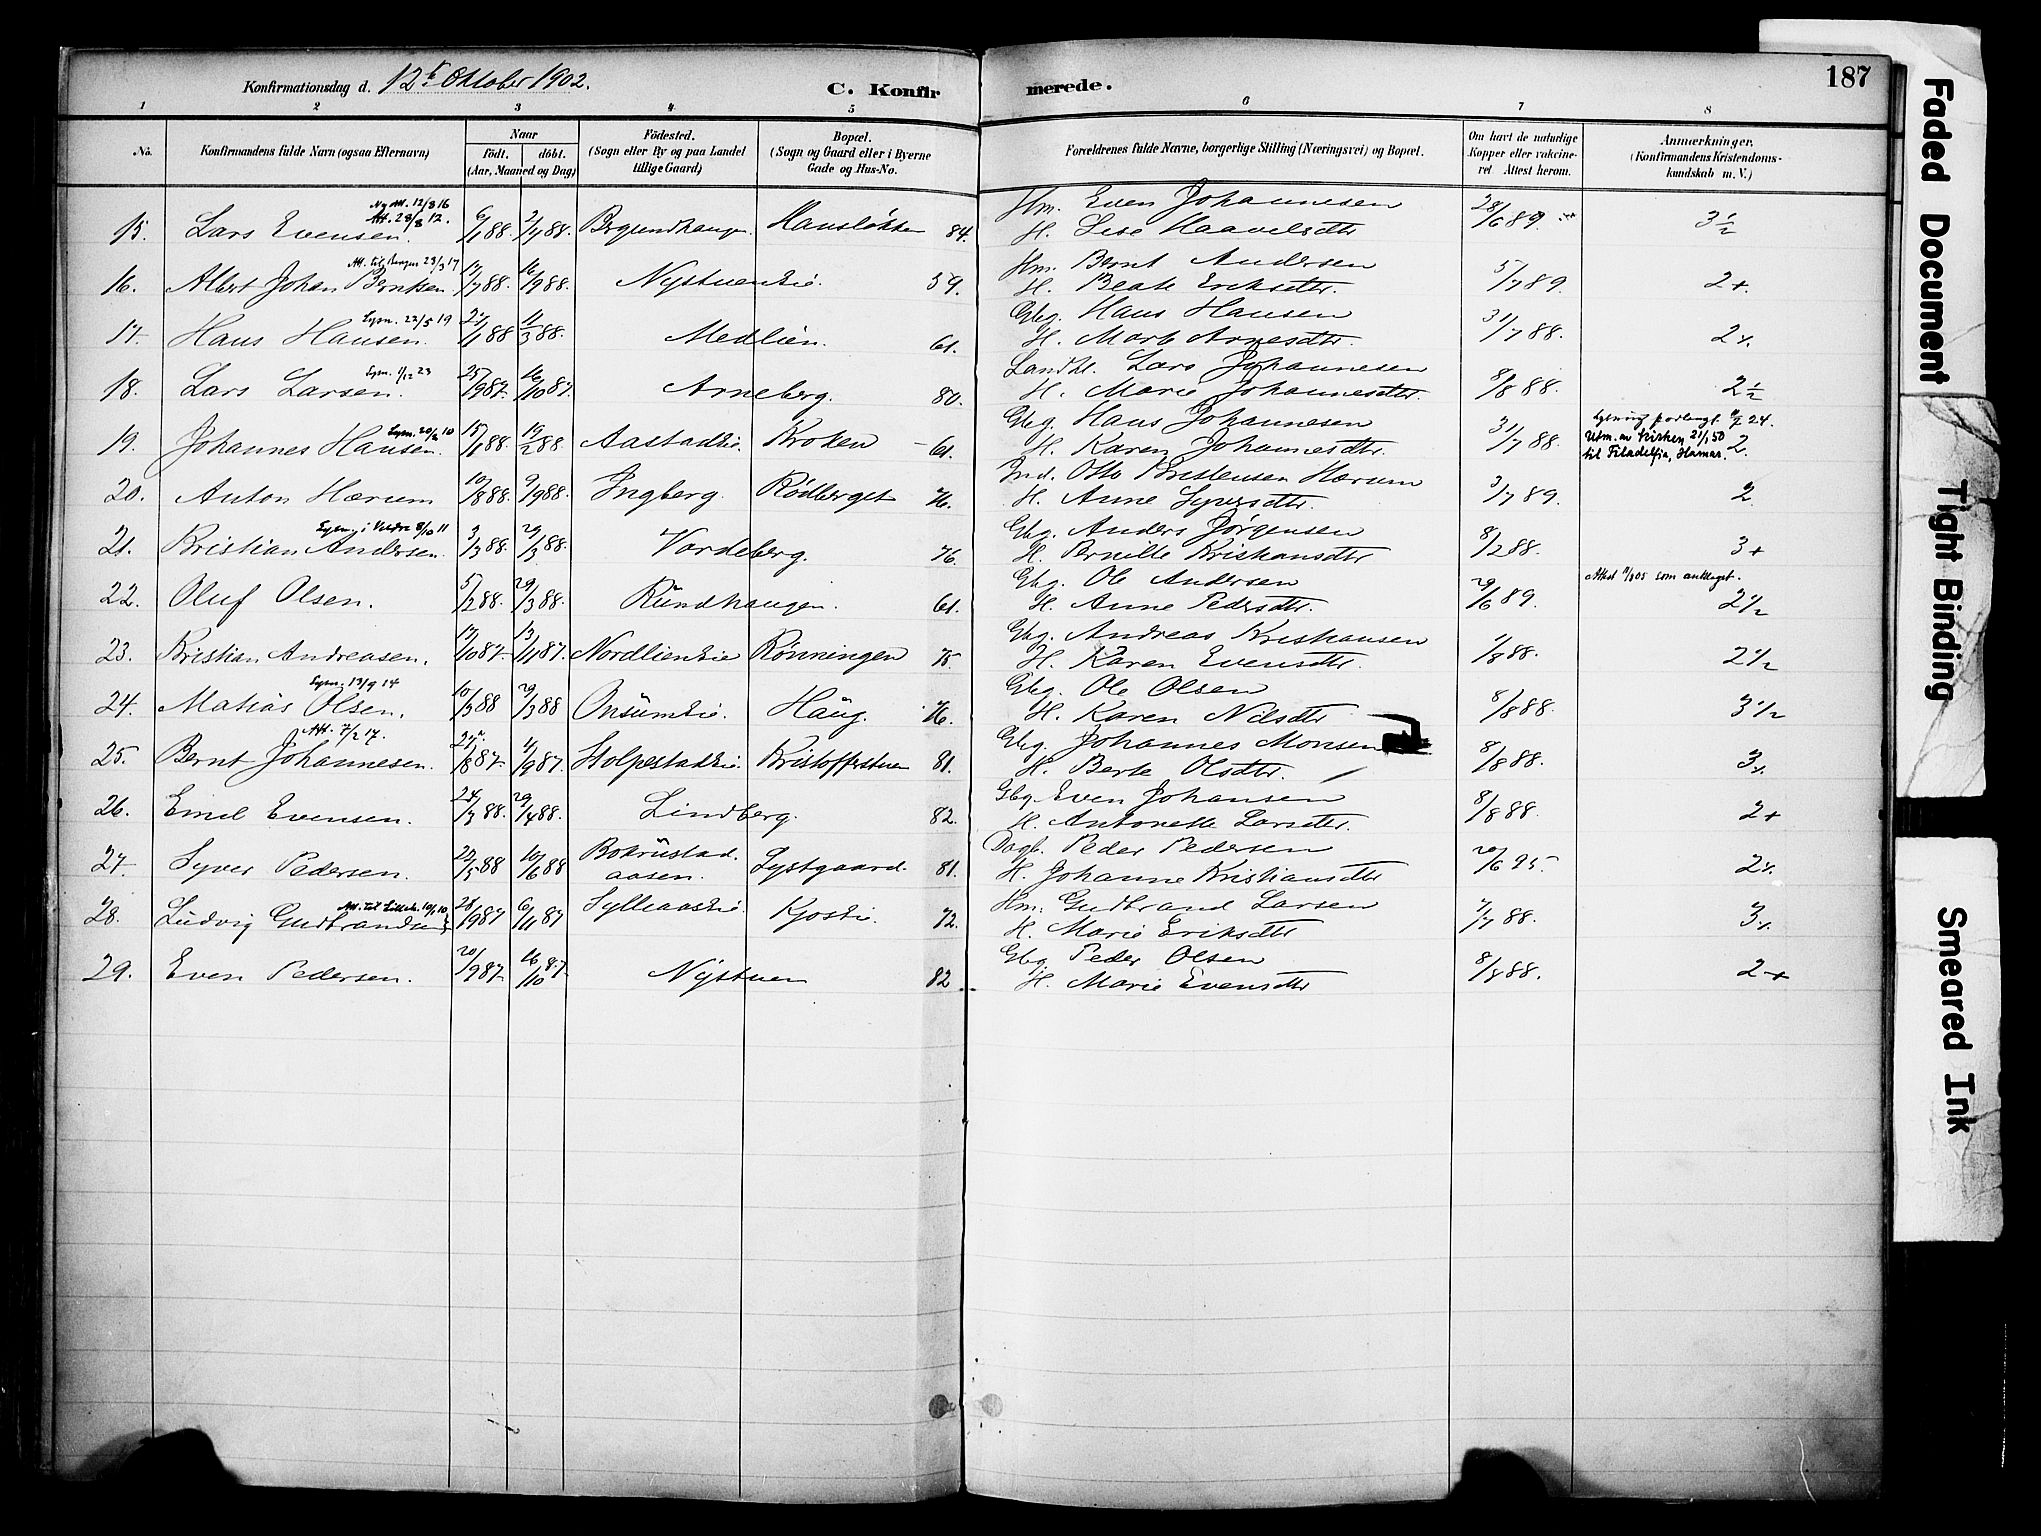 187
Konfirmationsdag d. 12te Oktober 1902.
C. Konfir merede.
1 2 3 4 5 6 7 8
No.
Konfirmandens fulde Navn (ogsaa Efternavn)
Naar
født. døbt.
(Aar, Maaned og Dag)
Födested.
(Sogn eller By og paa Landet
tillige Gaard)
Bopæl.
(Sogn og Gaard eller i Byerne
Gade og Hus-No.
Forældrenes fulde Navne, borgerlige Stilling (Næringsvei) og Bopæl.
Om havt de naturlige
Kopper eller vaccine-
ret. Attest herom.
Anmærkninger.
(Konfirmandens Kristendoms-
kundskab m. V.)
Ny Att. 12/3 16
Att. 28/3 12.
15. Lars Evensen. 6/1 88 2/4 88. Hansløkken 84. Hm. Even Johannesen 28/6 89. 3 1/2
H. Lise Haavelsdtr
Att. til Bergen 23/3 17
16. Albert Johan Berntsen. 17/7 88. 16/9 88. Nystueneie. 59. Hm. Bernt Andersen 5/7 89. 2+.
H. Beate Eriksdtr.
Lysn. 22/5 19
17. Hans Hansen. 21/1 88 11/3 88. Medlien. 61. Gbg. Hans Hansen 31/7 88. 2+.
H. Marte Arnesdtr.
Lysn. 1/12 23
18. Lars Larsen. 25/9 87. 16/10 87. Arneberg. 80. Landh. Lars Johannesen 8/8 88. 2 1/2
H. Marie Johannesdtr.
Lysn. 20/2 10
19. Johannes Hansen. 15/1 88. 19/2 88. Aastadeie Kroken – 61. Gbg. Hans Johannesen 31/7 88. 2.
H. Karen Johannesdtr.
Lysning forlangt 24.
Utm. av kirken 21/1 50
til Filadelfia, Hamar.
20. Anton Hærum 19/8 88. 9/9 88. Ingberg. Rødberget 76. Ind. Otto Kristensen Hærum 3/7 89. 2
H. Anne Syversdtr.
Lysn. i Veldre 8/10 11
21. Kristian Andersen. 3/3 88. 29/3 88. Vordeberg. 76. Gbg. Anders Jørgensen 8/2 88. 3+
H. Pernille Kristiansdtr
22. Oluf Olsen. 5/2 88. 29/3 88. Rundhaugen. 61. Gbg. Ole Andersen 29/6 89. 2 1/2
H. Anne Pedersdtr.
Attest 11/3 05 som antaget.
23. Kristian Andreasen. 17/10 87. 13/11 87. Nordlieneie Rønningen 75. Gbg. Andreas Kristiansen 1/8 88. 2 1/2
H. Karen Evensdtr.
Lysn. 13/9 14
24. Matias Olsen. 10/3 88 29/3 88 Onsumeie. Haug. 76. Gbg. Ole Olsen 8/8 88. 3 1/2
H. Karen Nilsdtr
Att. 7/2 17.
25. Bernt Johannesen. 24/8 87. 4/9 87. Stolpestadeie. Kristofferstuen 81. Gbg. Johannes Monsen 8/8 88. 3+.
H. Berte Olsdtr.
26. Emil Evensen. 24/3 88. 29/4 88. Lindberg. 82. Gbg Even Johansen 8/8 88. 2+
H. Antonette Larsdtr.
27. Syver Pedersen. 22/5 88 10/6 88 Bokrustad.
aasen. Lystgaard. 81. Dagb. Peder Pedersen 20/6 95. 2+.
H. Johanne Kristiansdtr
Att. til Lilleh. 10/1 10
28. Ludvig Gudbrandsen 28/9 87 6/11 87 Sylliaaseie. Kjoseie. 72. Hm. Gudbrand Larsen 7/7 88. 3+.
H. Marie Eriksdtr
29. Even Pedersen. 20/9 87. 16/10 87. Nystuen 82 Gbg Peder Olsen 8/8 88. 2+
H. Marie Evensdtr
Faded Document
Tight Binding
Smeared Ink